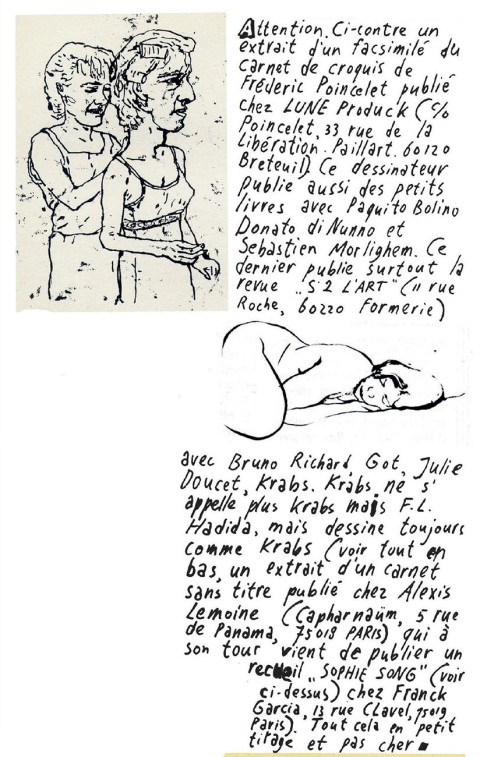 Attention. Ci-contre un
extrait d'un facsimilé du
carnet de croquis de
Fréderic Poincelet publié
chez LUNE Produck (C/o
Poincelet, 33 rue de la
Libération. Paillart. 60120
Breteuil) Ce dessinateur
publie aussi des petits
livres avec Paquito Bolino
Donato di Nunno et
Sebastien Morlighem. Ce
dernier publie surtout la
revue „S 2 L'ART" (11 rue
Roche, 60220 Formerie)
avec Bruno Richard, Got, Julie
Doucet, Krabs. Krabs ne s'
appelle plus Krabs mais F.L.
Hadida, mais dessine toujours
comme Krabs (voir tout en
bas, un extrait d'un carnet
sans titre publié chez Alexis
Lemoine (Capharnaüm, 5 rue
de Panama, 75018 PARIS) qui à
son tour vient de publier un
recueil „SOPHIE SONG" (voir
ci-dessus) chez Franck
Garcia, 13 rue Clavel, 75019
Paris). Tout cela en petit
tirage et pas cher